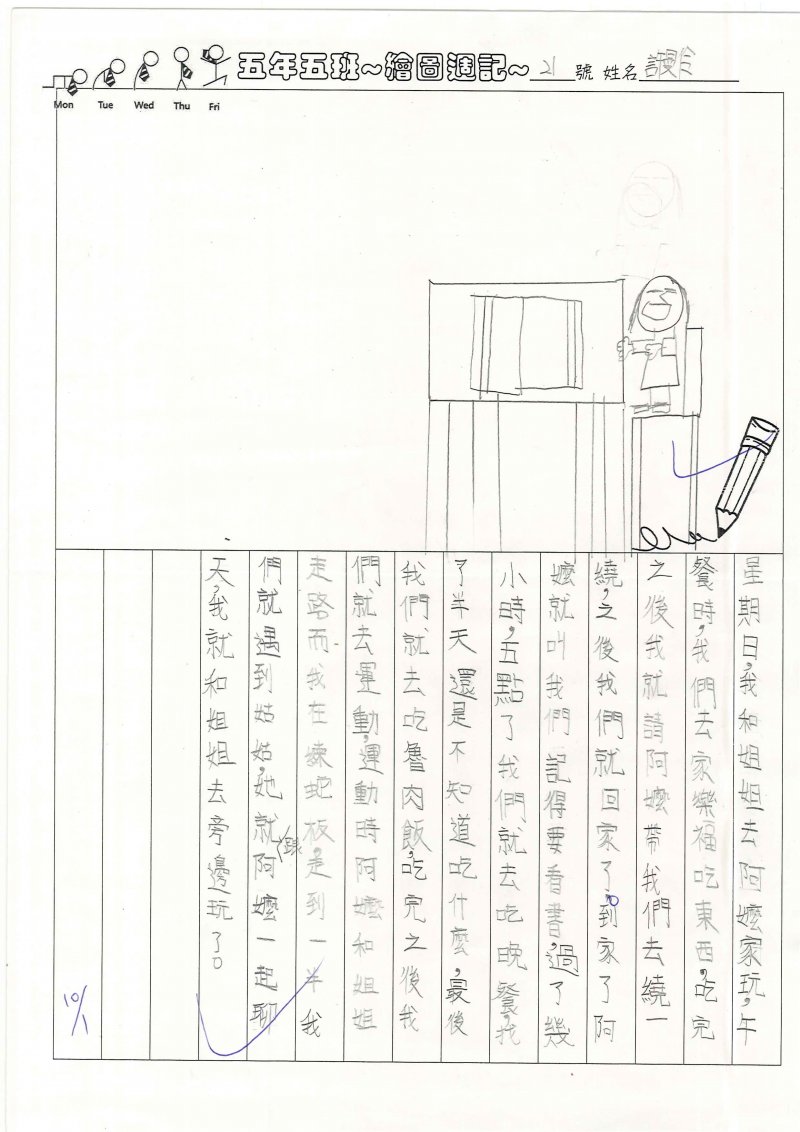 五年五班~繪圖週記~ 21 號 姓名
Mon Tue Wed Thu Fri
星期日,我和姐姐去阿嬤家玩,午
餐時,我們去家樂福吃東西,吃完
之後我就請阿嬤帶我們去繞一
繞,之後我們就回家了。到家了阿
嬤就叫我們記得要看書,過了幾
小時,五點了我們就去吃晚餐,找
了半天還是不知道吃什麼,最後
我們就去吃魯肉飯,吃完之後我
們就去運動,運動時阿嬤和姐姐
走路而我在練蛇板,走到一半我
們就遇到姑姑,她就跟阿嬤一起聊
天,我就和姐姐去旁邊玩了。
10/1